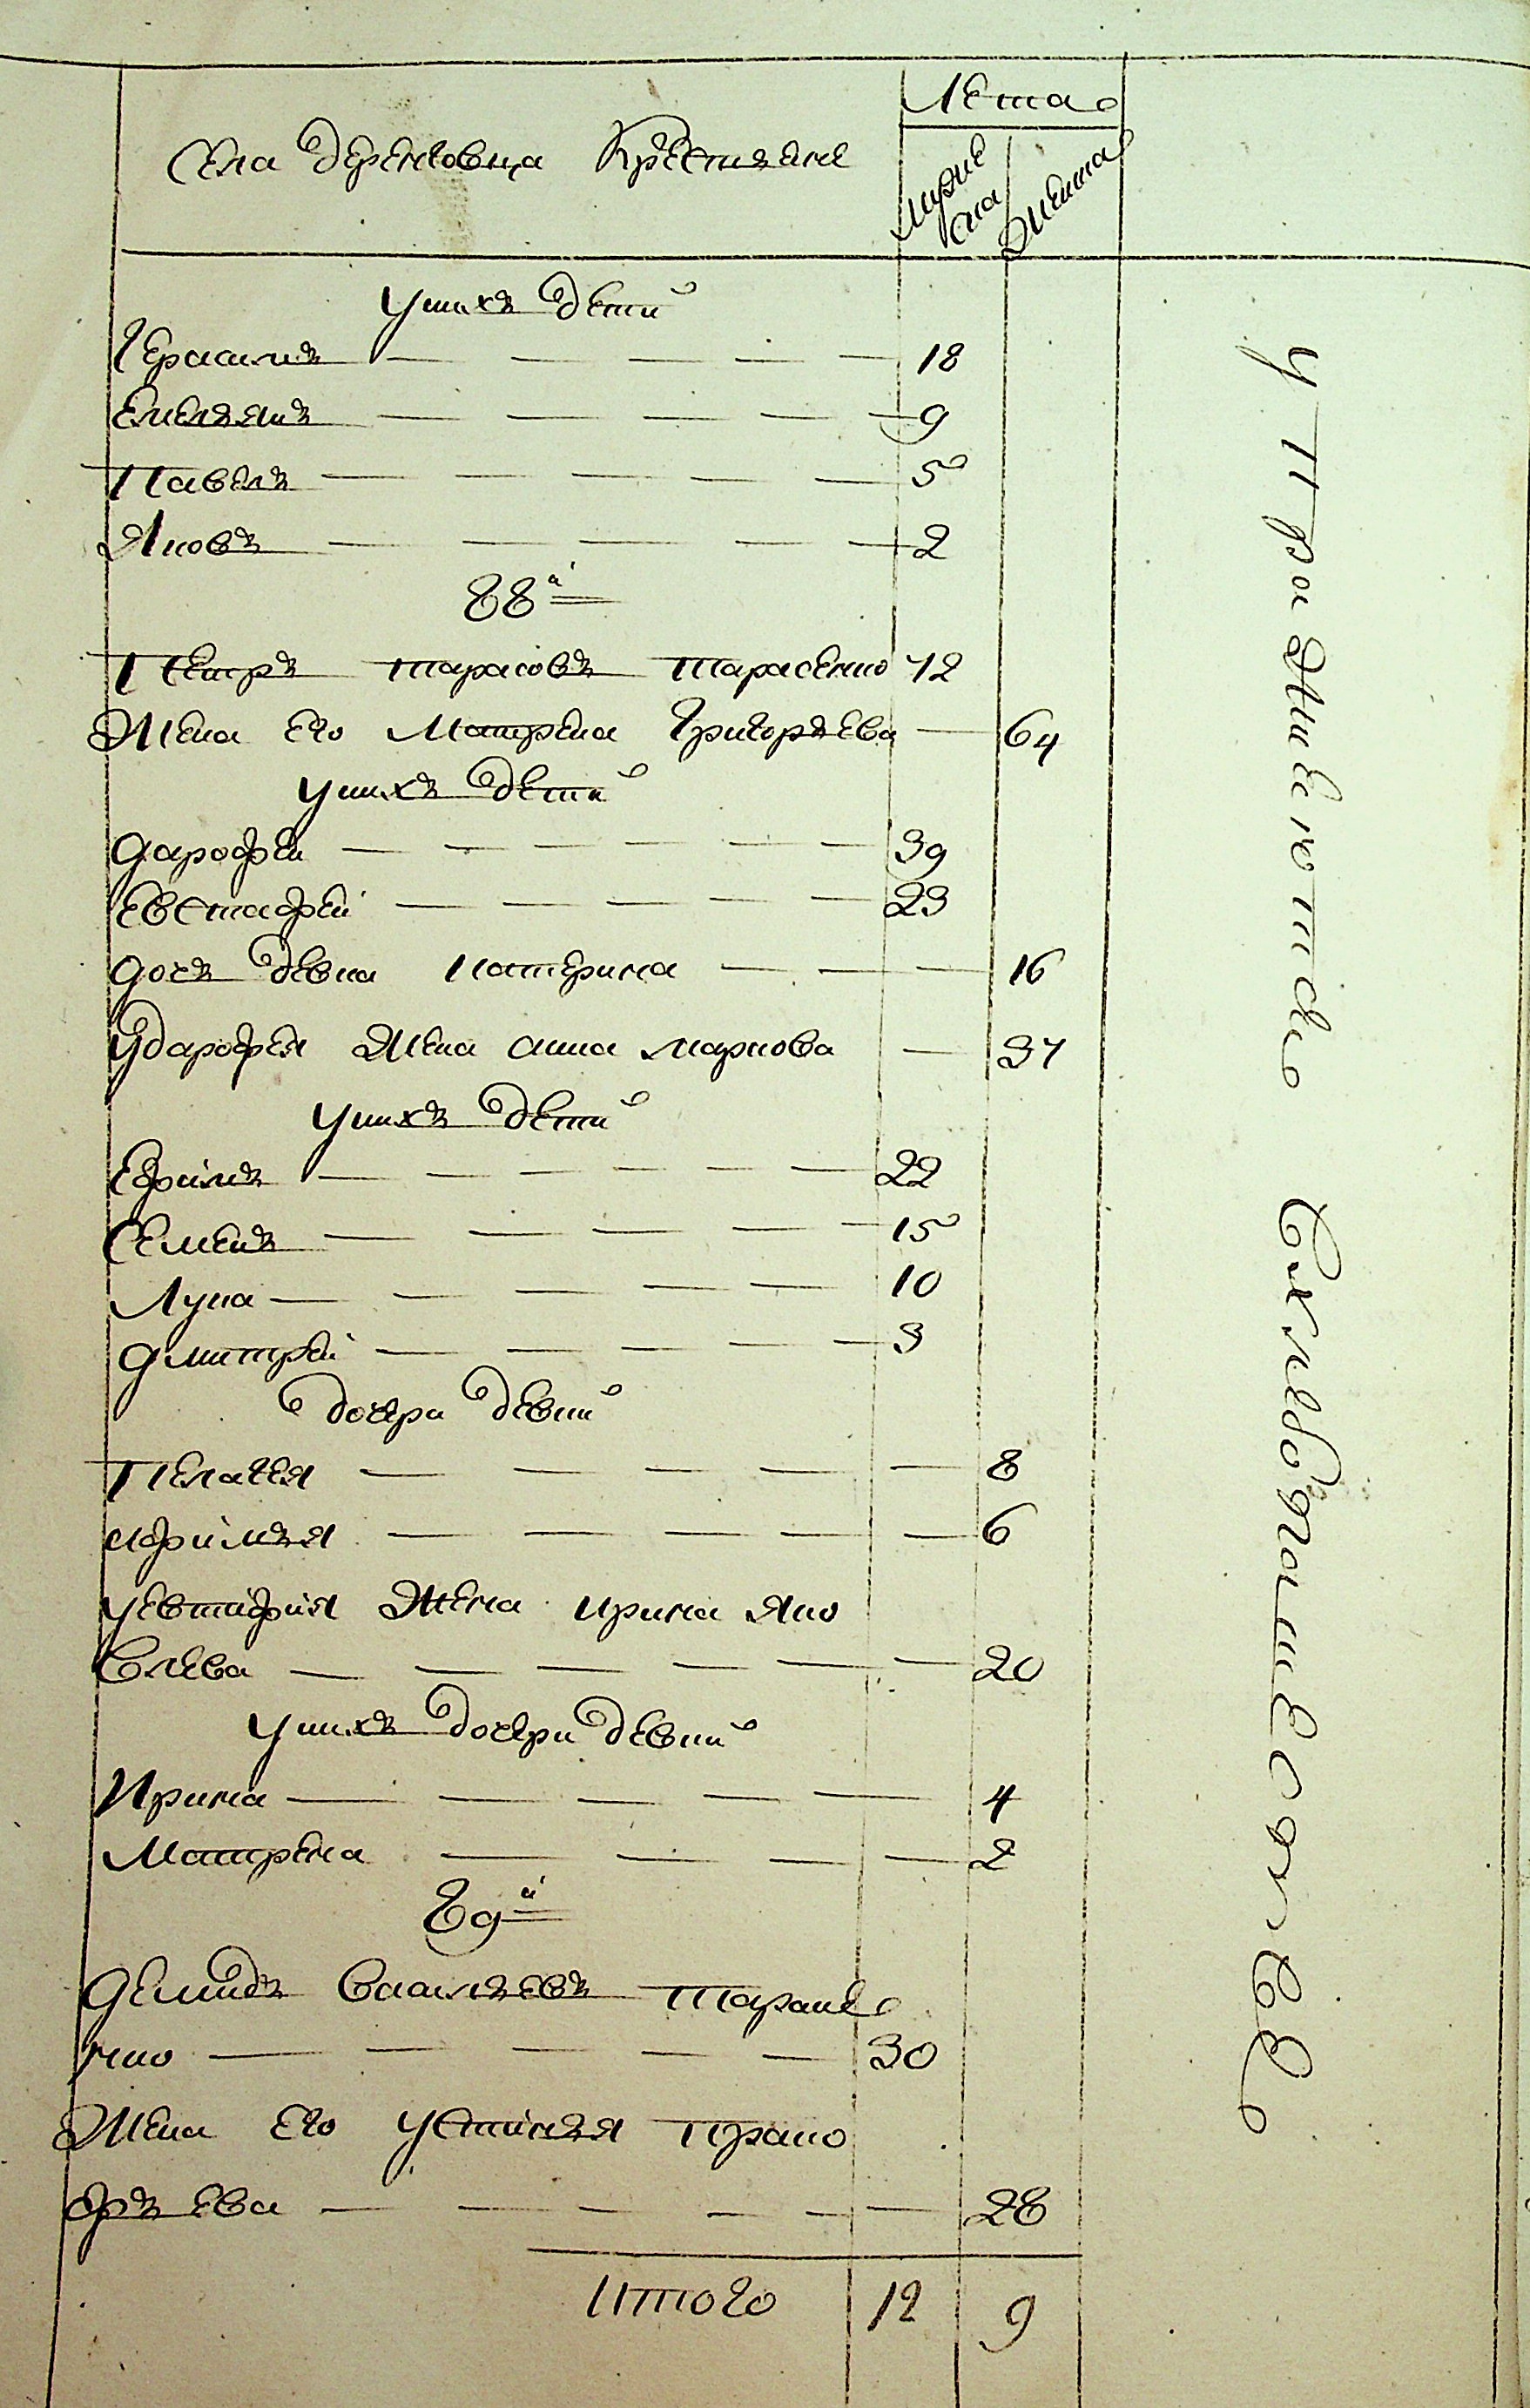 Лета
Села Деренковца Крестияне
мужеска
женска
У них детий
Герасим 18
Емельян 9
Павел 5
Яков 2
88й
Петръ Тарасовъ Тарасенко 72
Жена его Матрена Григоръева 64
У них дети
Дарофей 39
Евстафей 23
Дочь девка Катерина 16
У Дарофея жена Анна Маркова 37
У них дети
Ефимъ 22
Семенъ 15
Лука 10
Дмитрей 3
дочери девки
Пелагея 8
Афимъя 6
У Евстафия жена Ирина Яко
влева 20
У них дочери девки
Ирина 4
Матрена 2
89й
Демидъ Васильевъ Таране
нко 30
Жена его Устинъя Проко
фъева 28
Итого 12 9
У Приложение